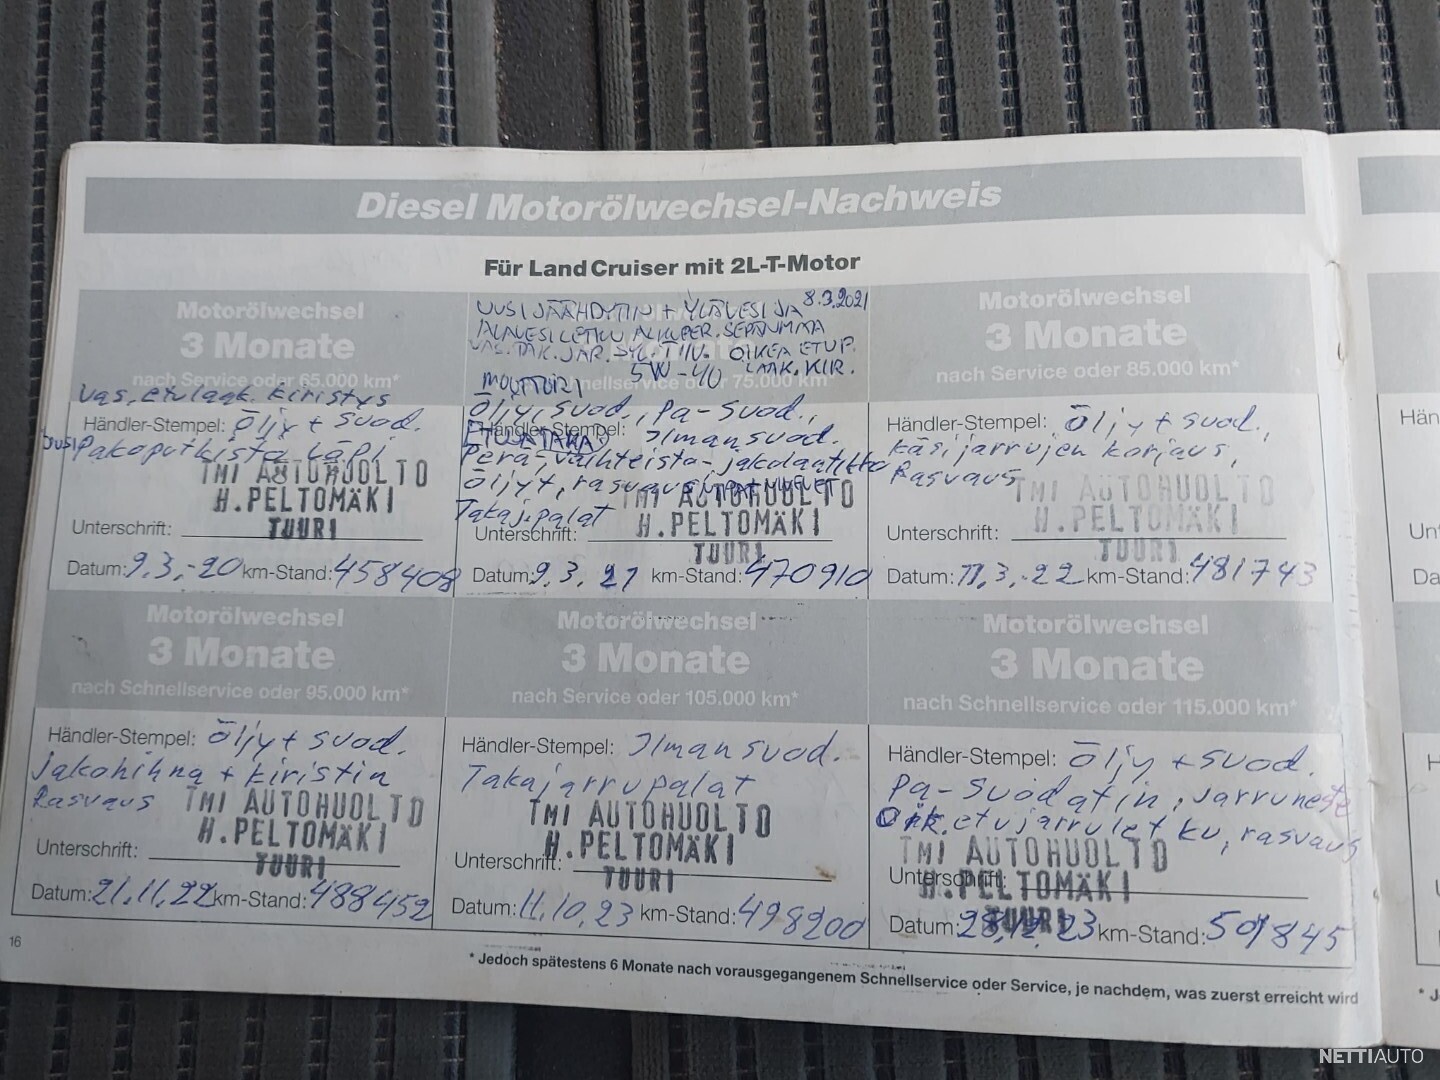 Diesel Motorölwechsel-Nachweis
Für Land Cruiser mit 2L-T-Motor
Motorölwechsel
3 Monate
nach Service oder 65.000 km*
vas. etulaak. kiristys
Händler-Stempel: Öljy + suod.
uusi Pakoputkisto läpi
TMI AUTOHUOLTO
H.PELTOMÄKI
TUURI
Unterschrift:
Datum: 9.3.-20 km-Stand: 458408
UUSI JÄÄHDYTIN + YLÄVESI JA 8.3.2021
ALAVESILETKU ALKUPER. SEPÄNUMMA
VAS. TAK. JAR. SYL. OIKEA ETUP.
5W-40 LAAK. KIR.
MOOTTORI
75.000 km*
Öljy, suod., Pa-suod.,
Händler-Stempel: Ilmansuod.
ETU JA TAKA
Perä-, vaihteisto-, jakolaatikko
öljyt, rasvaus
Takaj.palat
TMI AUTOHUOLTO
H.PELTOMÄKI
TUURI
Unterschrift:
Datum: 9.3.21 km-Stand: 470910
Motorölwechsel
3 Monate
nach Service oder 85.000 km*
Händler-Stempel: Öljy + suod.,
käsijarrujen korjaus,
Rasvaus
TMI AUTOHUOLTO
H.PELTOMÄKI
TUURI
Unterschrift:
Datum: 3.-22 km-Stand: 481743
Motorölwechsel
3 Monate
nach Schnellservice oder 95.000 km*
Händler-Stempel: Öljy + suod.
jakohihna + kiristin
Rasvaus
TMI AUTOHUOLTO
H.PELTOMÄKI
TUURI
Unterschrift:
Datum: 21.11.22 km-Stand: 488452
Motorölwechsel
3 Monate
nach Service oder 105.000 km*
Händler-Stempel: Ilmansuod.
Takajarrupalat
TMI AUTOHUOLTO
H.PELTOMÄKI
TUURI
Unterschrift:
Datum: 11.10.23 km-Stand: 498200
Motorölwechsel
3 Monate
nach Schnellservice oder 115.000 km*
Händler-Stempel: Öljy + suod.
Pa-Suodatin, Jarruneste
etujarruletku, rasvaus
TMI AUTOHUOLTO
H.PELTOMÄKI
TUURI
Unterschrift:
Datum: 28.12.23 km-Stand:
16
* Jedoch spätestens 6 Monate nach vorausgegangenem Schnellservice oder Service, je nachdem, was zuerst erreicht wird
Hän
Un
Da
* J
NETTIAUTO